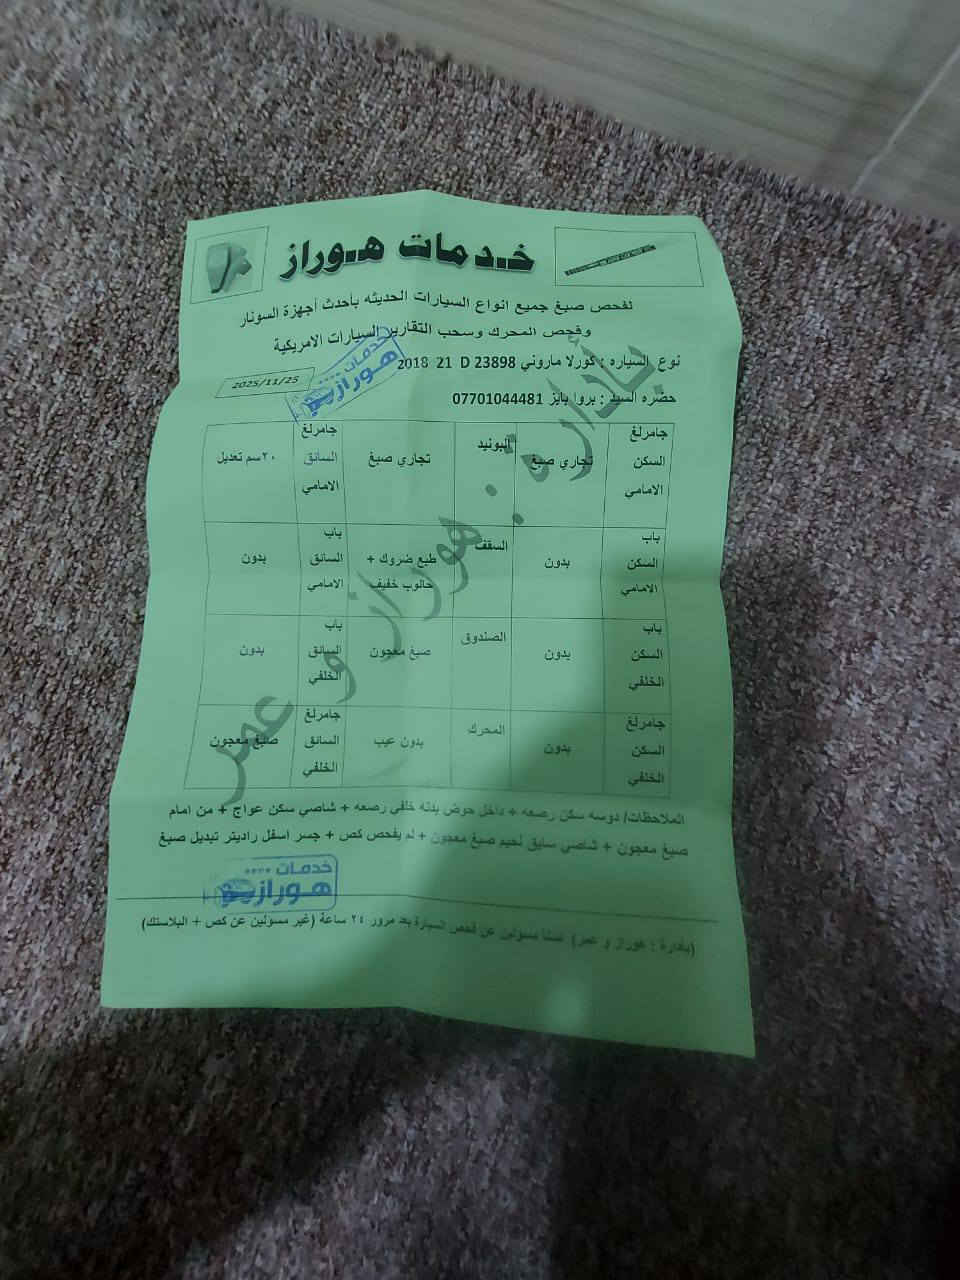 خدمات هوراز
لفحص صبغ جميع انواع السيارات الحديثه بأحدث أجهزة السونار
وفحص المحرك وسحب التقارير السيارات الامريكية
نوع السياره : كورلا ماروني 23898 D 21 2018
2025/11/25
خدمات
هوراز
حضره السيد : بروا بايز 07701044481
جامرلغ السكن الامامي
تجاري صبغ
البونيد
تجاري صبغ
جامرلغ السائق الامامي
٢٠سم تعديل
باب السكن الامامي
بدون
السقف
طبع ضروك + حالوب خفيف
باب السائق الامامي
بدون
باب السكن الخلفي
بدون
الصندوق
صبغ معجون
باب السائق الخلفي
بدون
جامرلغ السكن الخلفي
بدون
المحرك
بدون عيب
جامرلغ السائق الخلفي
صبغ معجون
بأدارة : هوراز و عمر
الملاحظات/ دوسه سكن رصعه + داخل حوض بدنه خلفي رصعه + شاصي سكن عواج + من امام
صبغ معجون + شاصي سايق لحيم صبغ معجون + لم يفحص كص + جسر اسفل راديتر تبديل صبغ
خدمات
هوراز
(بأدارة : هوراز و عمر) لسنا مسولين عن فحص السيارة بعد مرور ٢٤ ساعة (غير مسولين عن كص + البلاستك)